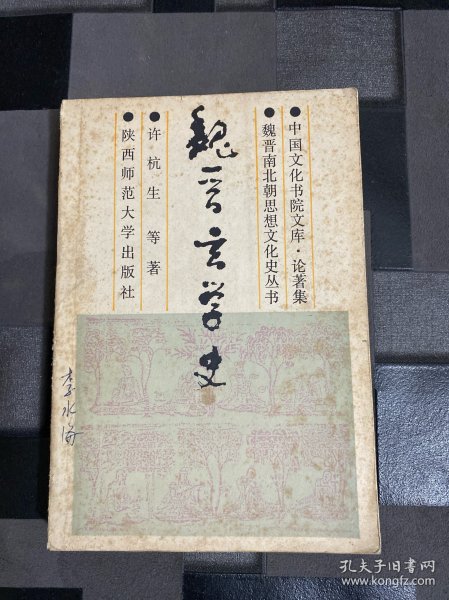 中国文化书院文库·论著集
魏晋南北朝思想文化史丛书
魏晋玄学史
许杭生 等著
陕西师范大学出版社
李水海
孔夫子旧书网
www.kongfz.com